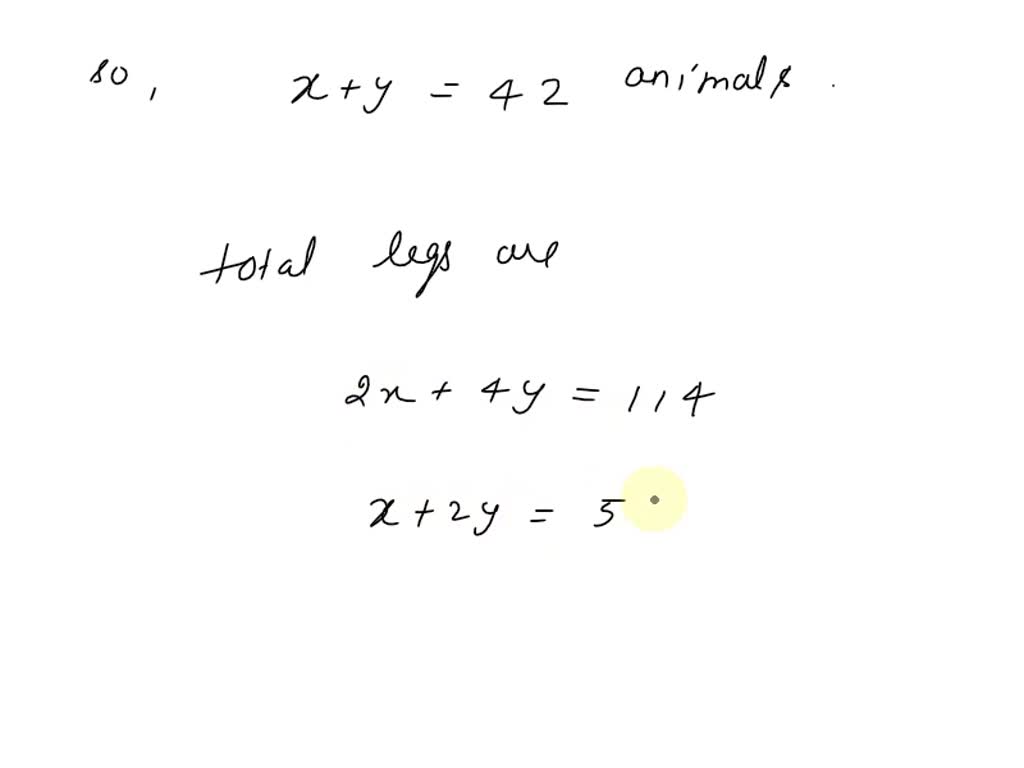 so, x+y = 42 animals.
total legs are
2x + 4y = 114
x + 2y = 5